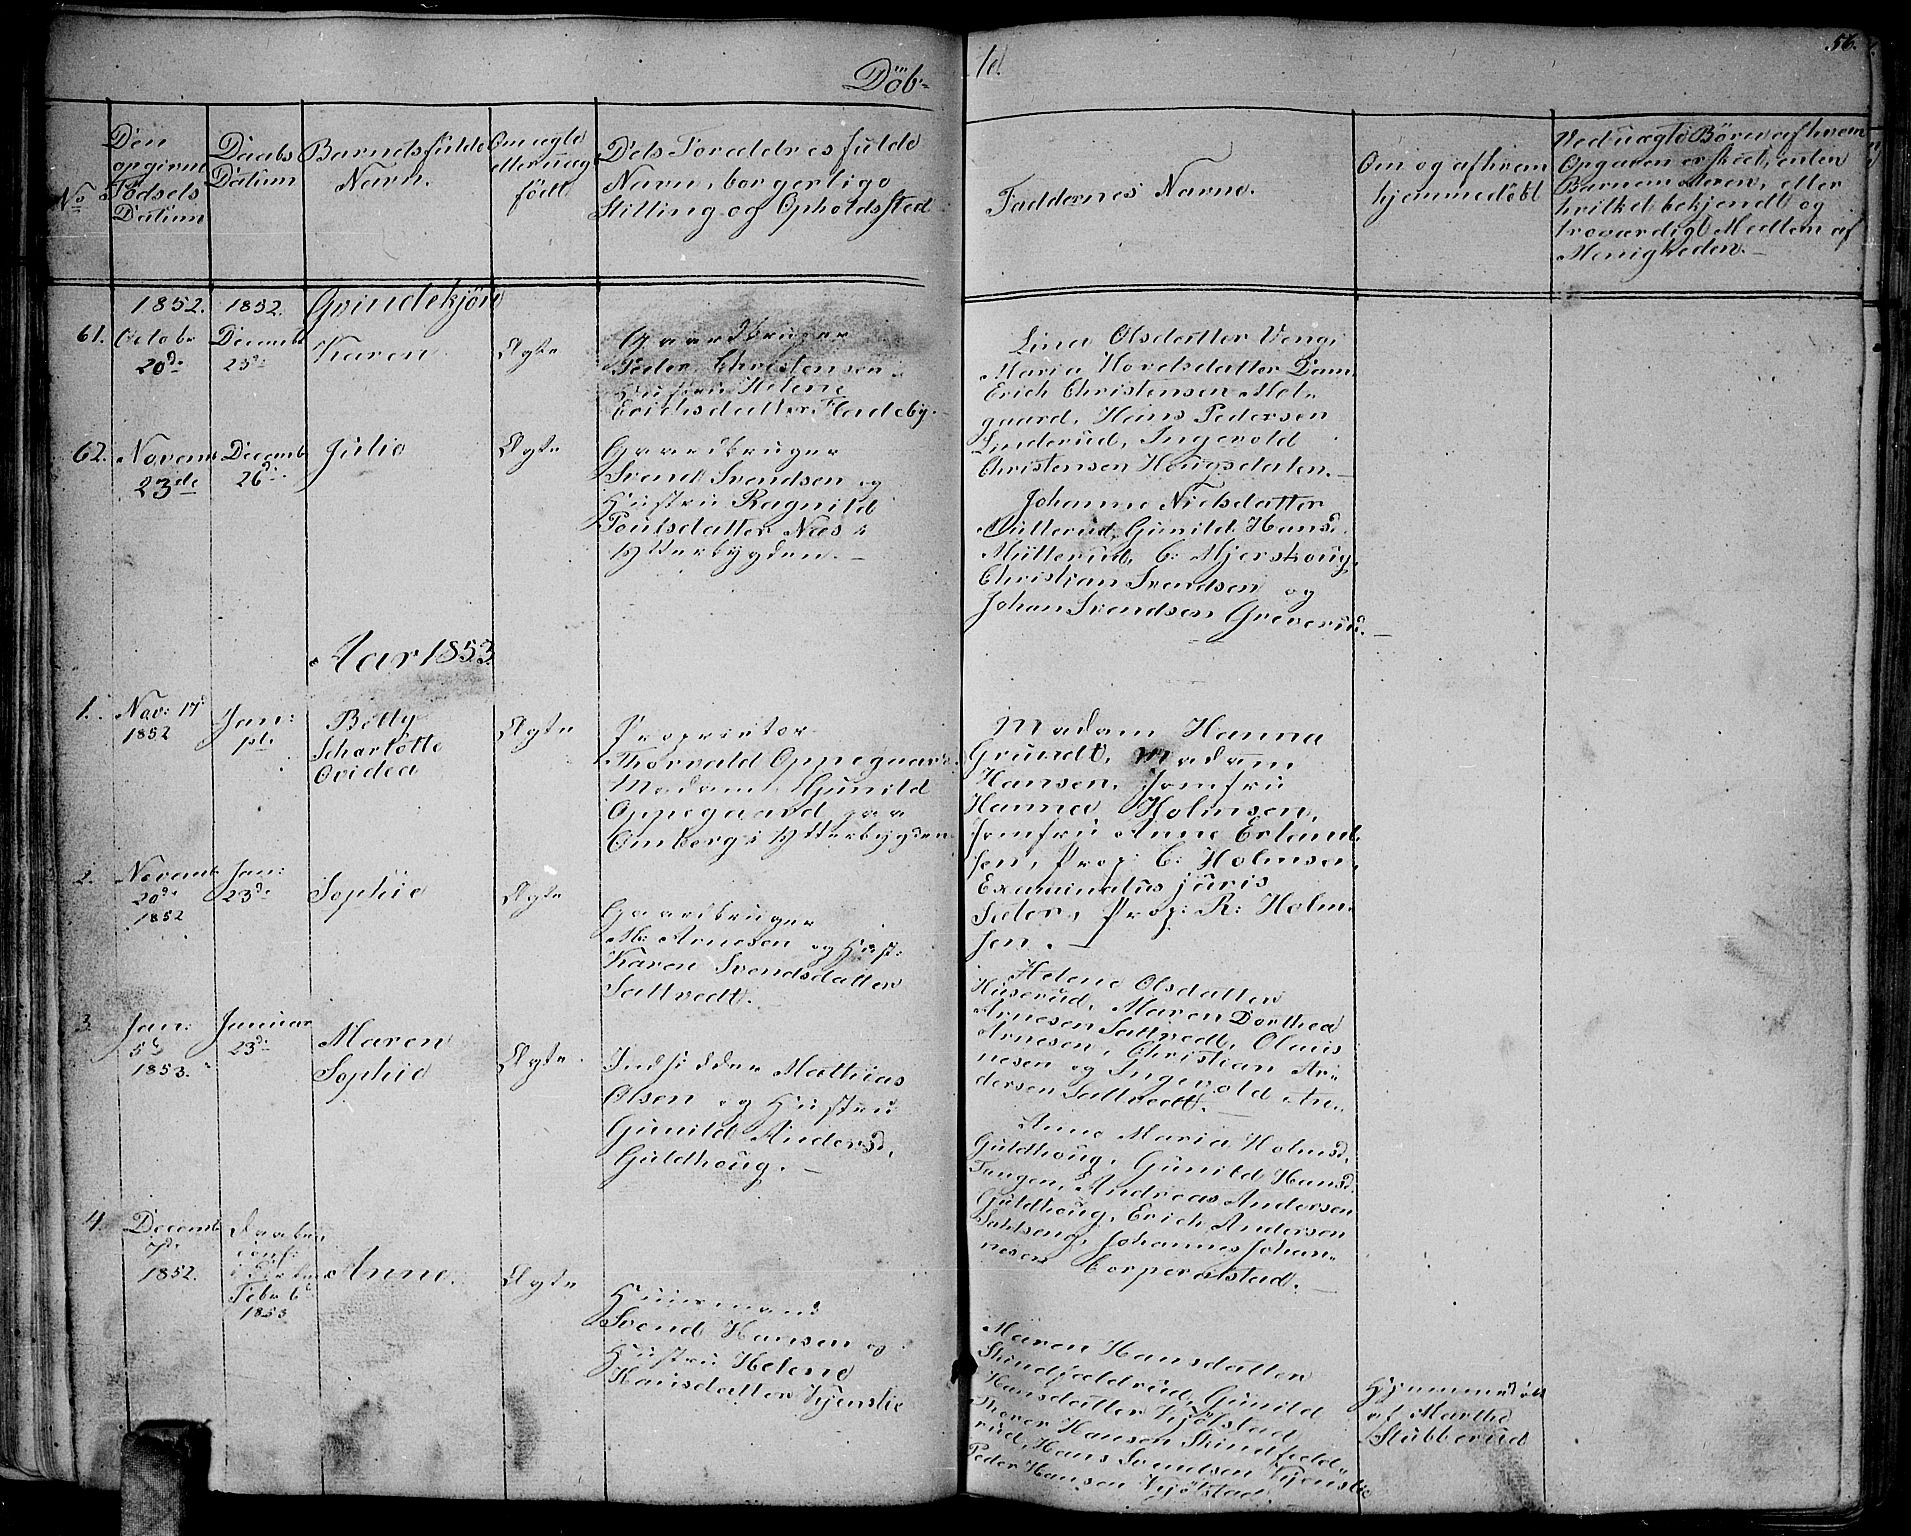 56.
Döb-
te.
No
Den
opgivne
Födsels
Datum
Daabs
Datum
Barnets fulde
Navn.
Om ægte
eller uægte
født
Dets Forældres fulde
Navn, borgerlige
Stilling og Opholdssted
Faddernes Navne.
Om og af hvem
hjemmedøbt
Ved uægte Börn af hvem
Opgaven er skeet, enten
Barnemoderen, eller
hvilket bekjendt og
troværdigt Medlem af
Menigheden.
1852. 1852. Qvindekjön
61.
Octobr
20de
Decemb
23de
Karen
Ægte
Gaardbruger
Peder Christensen
Hustru Helene
Erichsdatter Fladeby.
Lina Olsdatter Veng,
Maria Hovelsdatter Dam,
Erich Christensen Mel-
gaard, Hans Pedersen
Linderud, Ingevold
Christensen Hougsdalen.
62.
Novemb
23de
Decemb
26de
Julie
Ægte
Gaardbruger
Svend Svendsen og
Hustru Ragnild
Poulsdatter Næs i
Ytterbygden.
Johanne Nielsdatter
Mutterud, Gunild Hansd.
Mutterud, C. Mjerskoug,
Christian Svendsen og
Johan Svendsen Greverud.
Aar 1853
1.
Nov: 17de
1852
Jan:
1ste
Betty
Scharlotte
Ovidea
Ægte
Proprietær
Thorvald Oppegaard
Madam Gunild
Oppegaard paa
Omberg i Ytterbygden
Madam Hanna
Grundt, Madam
Hansen, Jomfru
Hanna Holmsen,
Jomfru Anne Erland-
sen, Prop: C: Holmsen,
Examinatus juris
Seter, Prop: R: Holm-
sen.
2.
Novemb
20de
1852
Jan:
23de
Sophie
Ægte
Gaardbruger
M: Arnesen og Hust:
Karen Svendsdatter
Saltvedt.
Helene Olsdatter
Huserud, Maren Dorthea
Arnesen Saltvedt, Olaus
Arnesen, Christian Ar-
nesen og Ingevold An-
dersen Saltvedt.
3.
Jan:
5te
1853.
Januar
23de
Maren
Sophie
Ægte
Indsidder Mathias
Olsen og Hustru
Gunild Andersd.
Guldhoug.
Anne Maria Holmsd.
Guldhoug, Gunild Hansd.
Tangen, Andreas Andersen
Guldhoug, Erich Andersen
Sahlseng, Johannes Johan-
nesen Corperalstad.
4.
Decemb
7de
1852.
Daaben
conf:
i Kirken
Febr 6te
1853
Anne.
Ægte
Huusmand
Svend Hansen og
Hustru Helene
Hansdatter Kjenslie
Maren Hansdatter
Skindfældrud, Gunild
Hansdatter Kjølstad
Thorer Hansen Skindfæld-
rud, Hans Svendsen Kjenslie
Peder Hansen Kjølstad.
Hjemmedøbt
af Marthe
Stubberud